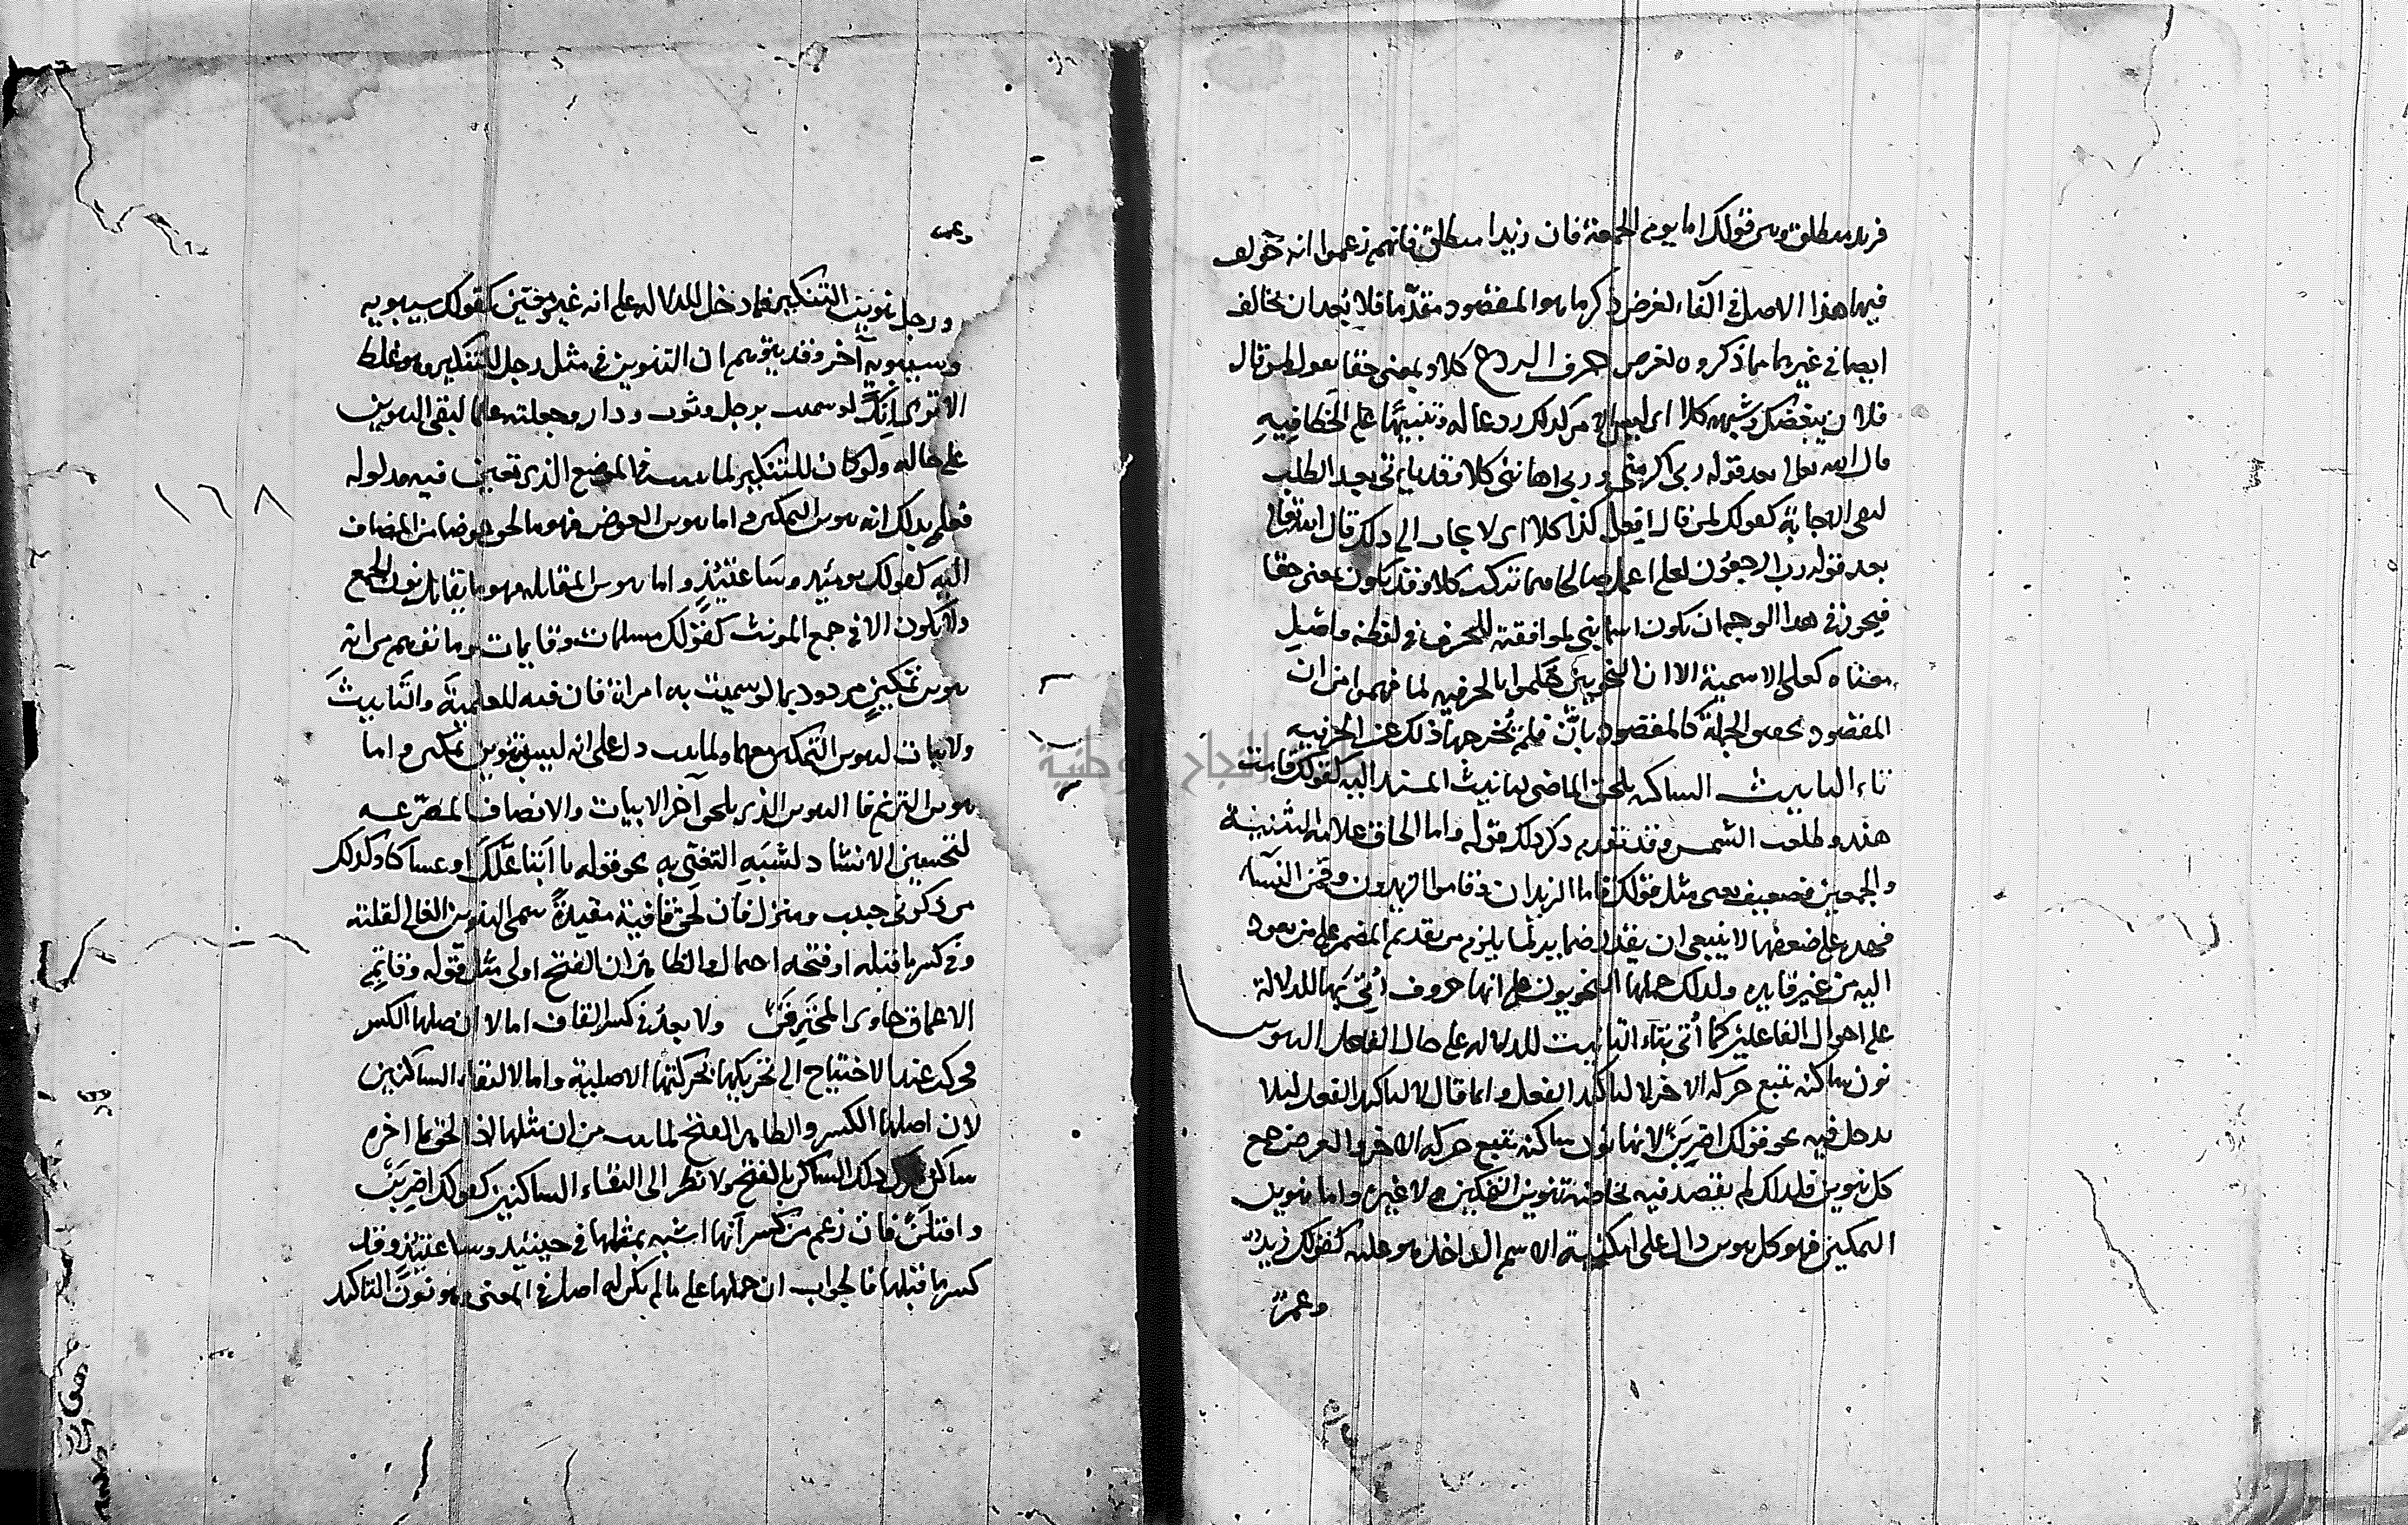 فزيد منطلق ومن قولك اما يوم الجمعة فان زيدا منطلق فانهم زعموا انه خولف
فيها هذا الاصل في الفاء لغرض ذكر ما هو المقصود متقدما فلا بعد ان يخالف
ايضا في غيرها مما ذكروه لغرض حرف الردع كلا وبمعنى حقا يقول لمن قال
فلان يبغضك وشبهه كلا اي ليس الامر كذلك ردعا له وتنبيها على الخطا فيه
قال الله تعالى بعد قوله ربي اكرمني و ربي اهانني كلا وقد ياتي بعد الطلب
لنفي الاجابة كقولك لمن قال افعل كذا كلا اي لا يجاب الى ذلك قال الله تعالى
بعد قوله رب ارجعون لعلي اعمل صالحا فيما تركت كلا وقد يكون بمعنى حقا
فيجوز في هذا الوجه ان يكون اسما بني لموافقته للحرف في لفظه واصل
معناه كعلى الاسمية الا ان النحويين حكموا بالحرفيه لما فهموا من ان
المقصود تحقيق الجملة كالمقصود بان فلم يخرجها ذلك عن الحرفيه
تاء التانيث الساكنه يلحق الماضي لتانيث المسند اليه كقولك قامت
هند وطلعت الشمس وقد تقدم ذكر ذلك قوله واما الحاق علامة التثنية
والجمعين فضعيف يعني مثل قولك قاما الزيدان وقاموا الزيدون وقمن النساء
فهذه على ضعفها لا ينبغي ان يقدر ضماير لما يلزم من تقديم المضمر على من يعود
اليه من غير فايده ولذلك حملها النحويون على انها حروف اتي بها للدلالة
على احوال الفاعلين كما اتي بتاء التانيث للدلاله على حال الفاعل التنوين
نون ساكنه تتبع حركة الاخر لا لتاكيد الفعل وانما قال لا لتاكيد الفعل ليلا
يدخل فيه نحو قولك اضربن لانها نون ساكنه تتبع حركة الاخر والغرض جمع
كل تنوين فلذلك لم يقصد فيه بخاصة تنوين التمكين ولا غيره واما تنوين
التمكين فهو كل تنوين دال على امكنية الاسم الداخل هو عليه كقولك زيد
وعمرو
ورجل تنوين التنكير فما دخل للدلاله على انه غير معين كقولك سيبويه
وسيبويه آخر وقد يتوهم ان التنوين في مثل رجل للتنكير وهو غلط
الا ترى انك لو سميت برجل وثوب ودار وجعلته علما لبقي التنوين
على حاله ولو كان للتنكير لما ثبت في الموضع الذي تعين فيه مدلوله
فعلم بذلك انه تنوين التمكين واما تنوين العوض فهو ما لحق عوضا من المضاف
اليه كقولك يومئذ وساعتئذ واما تنوين المقابله فهو ما يقابل نون الجمع
ولا يكون الا في جمع المونث كقولك مسلمات وقايمات وما تفهم من انه
تنوين تمكين مردود بما لو سميت به امراة فان فيه للعلمية والتانيث
ولا ثبات لتنوين التمكين معهما ولما ثبت دل على انه ليس بتنوين تمكين واما
تنوين الترنم فالتنوين الذي يلحق آخر الابيات والانصاف المصرعه
لتحسين الانشاد لشبه التغني به نحو قوله يا ابتا علك او عساكا وكذلك
من ذكرى حبيب ومنزل فان لحق قافية مقيدة سمي التنوين الغالي لقلته
وفي كسر ما قبله او فتحه احتمال والظاهر ان الفتح اولى مثل قوله وقاتم
الاعماق خاوي المخترقن ولا بعد في كسر القاف اما لان اصلها الكسر
فحركت عند الاحتياج الى تحريكها بحركتها الاصلية واما لالتقاء الساكنين
لان اصلها الكسر والظاهر الفتح لما ثبت من ان مثلها اذا لحق ما اخره
ساكن حرك ذلك الساكن بالفتح ولا نظر الى التقاء الساكنين كقولك اضربن
واقتلن فان زعم من كسر انها اشبه بمثلها في حينئذ وساعتئذ وقد
كسر ما قبلها فالجواب ان حملها على ما لم يكن له اصل في المعنى وهو نون التاكيد
١٦٨
جامعة النجاح الوطنية